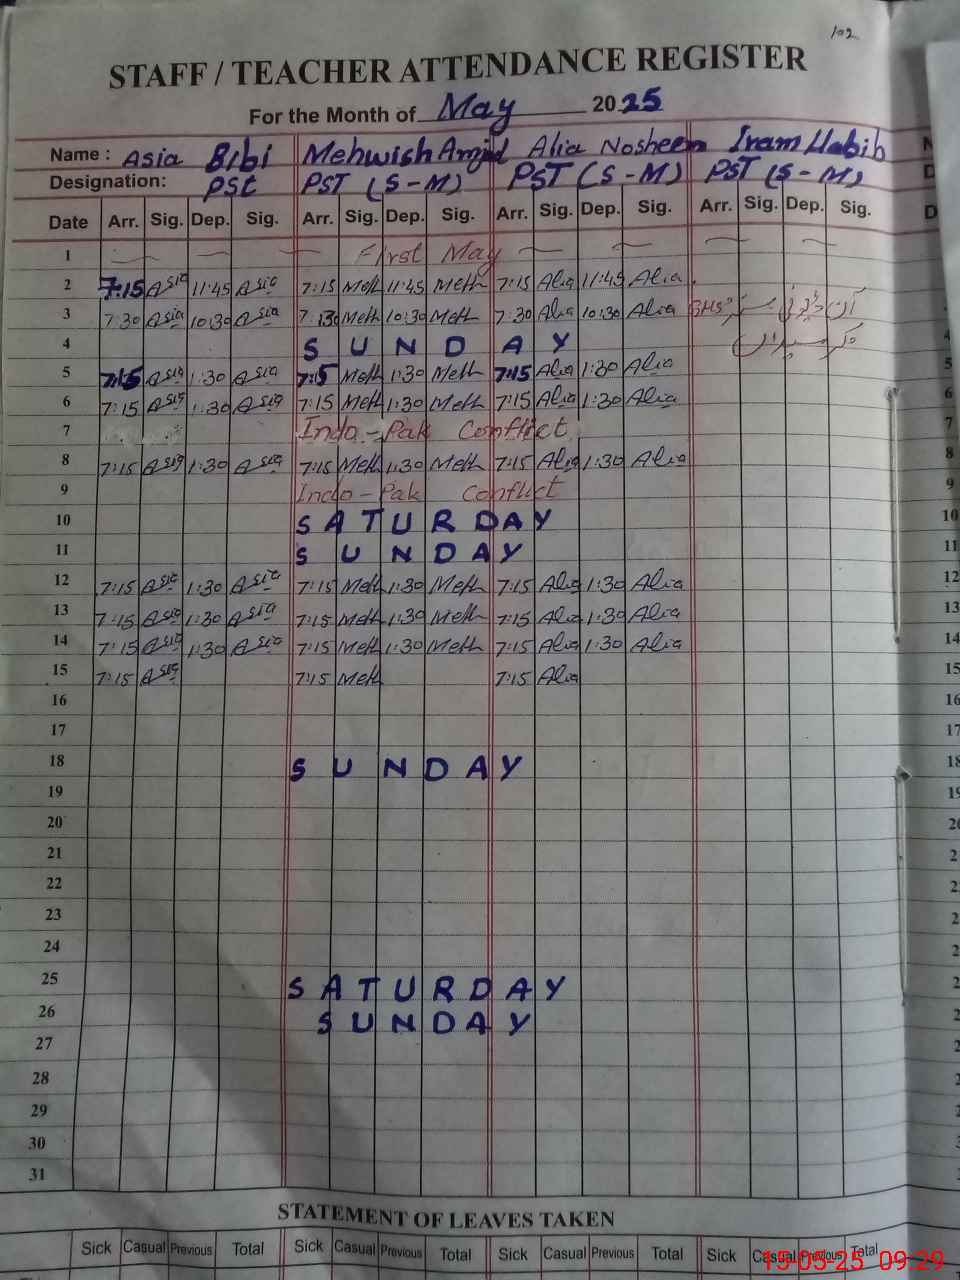 102
STAFF / TEACHER ATTENDANCE REGISTER
For the Month of May 2025
Name : Asia Bibi Mehwish Amjad Alia Nosheen Iram Habib
Designation: PST PST (S-M) PST (S-M) PST (S-M)
Date Arr. Sig. Dep. Sig. Arr. Sig. Dep. Sig. Arr. Sig. Dep. Sig. Arr. Sig. Dep. Sig.
1 First May
2 7:15 Asia 11:45 Asia 7:15 Meh 11:45 Meh 7:15 Alia 11:45 Alia
3 7:30 Asia 10:30 Asia 7:30 Meh 10:30 Meh 7:30 Alia 10:30 Alia GHS
4 SUNDAY
5 7:15 Asia 1:30 Asia 7:15 Meh 1:30 Meh 7:15 Alia 1:30 Alia
6 7:15 Asia 1:30 Asia 7:15 Meh 1:30 Meh 7:15 Alia 1:30 Alia
7 Indo-Pak Conflict
8 7:15 Asia 1:30 Asia 7:15 Meh 1:30 Meh 7:15 Alia 1:30 Alia
9 Indo-Pak Conflict
10 SATURDAY
11 SUNDAY
12 7:15 Asia 1:30 Asia 7:15 Meh 1:30 Meh 7:15 Alia 1:30 Alia
13 7:15 Asia 1:30 Asia 7:15 Meh 1:30 Meh 7:15 Alia 1:30 Alia
14 7:15 Asia 1:30 Asia 7:15 Meh 1:30 Meh 7:15 Alia 1:30 Alia
15 7:15 Asia 7:15 Meh 7:15 Alia
16
17
18 SUNDAY
19
20
21
22
23
24
25 SATURDAY
26 SUNDAY
27
28
29
30
31
STATEMENT OF LEAVES TAKEN
Sick Casual Previous Total Sick Casual Previous Total Sick Casual Previous Total Sick Casual Previous Total
15-05-25 09:29